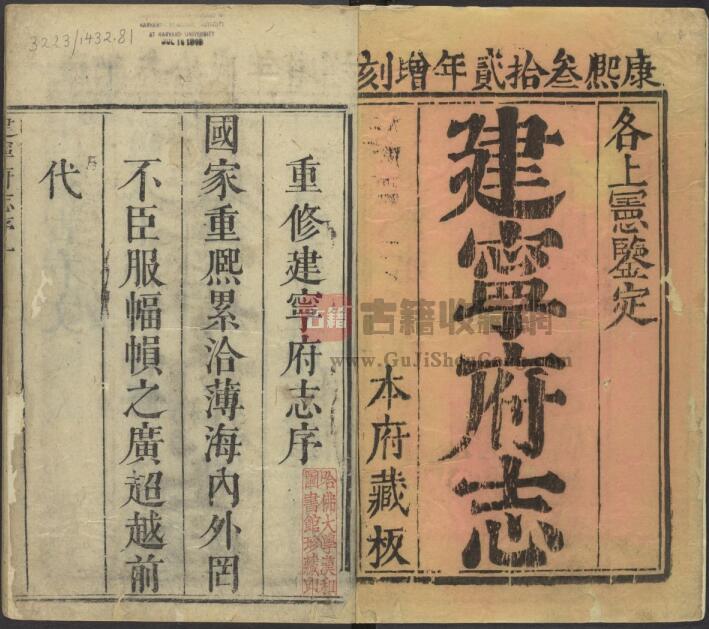 康熙叁拾貳年增刻
各上憲鑒定
建寧府志
本府藏板
重修建寧府志序
國家重熙累洽薄海內外罔
不臣服幅幀之廣超越前
代
哈佛大學漢和
圖書館珍藏印
3223/1432.81
AT HARVARD UNIVERSITY
古籍
古籍收藏網
www.GuJiShouCang.com